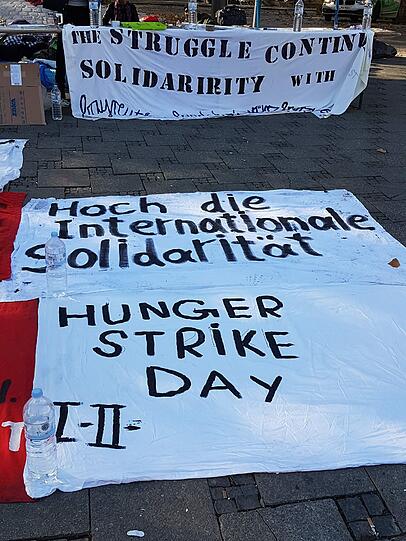 THE STRUGGLE CONTINU
SOLIDARIRITY WITH
Hoch die
Internationale
Solidarität
HUNGER
STRiKE
DAY
I-II-